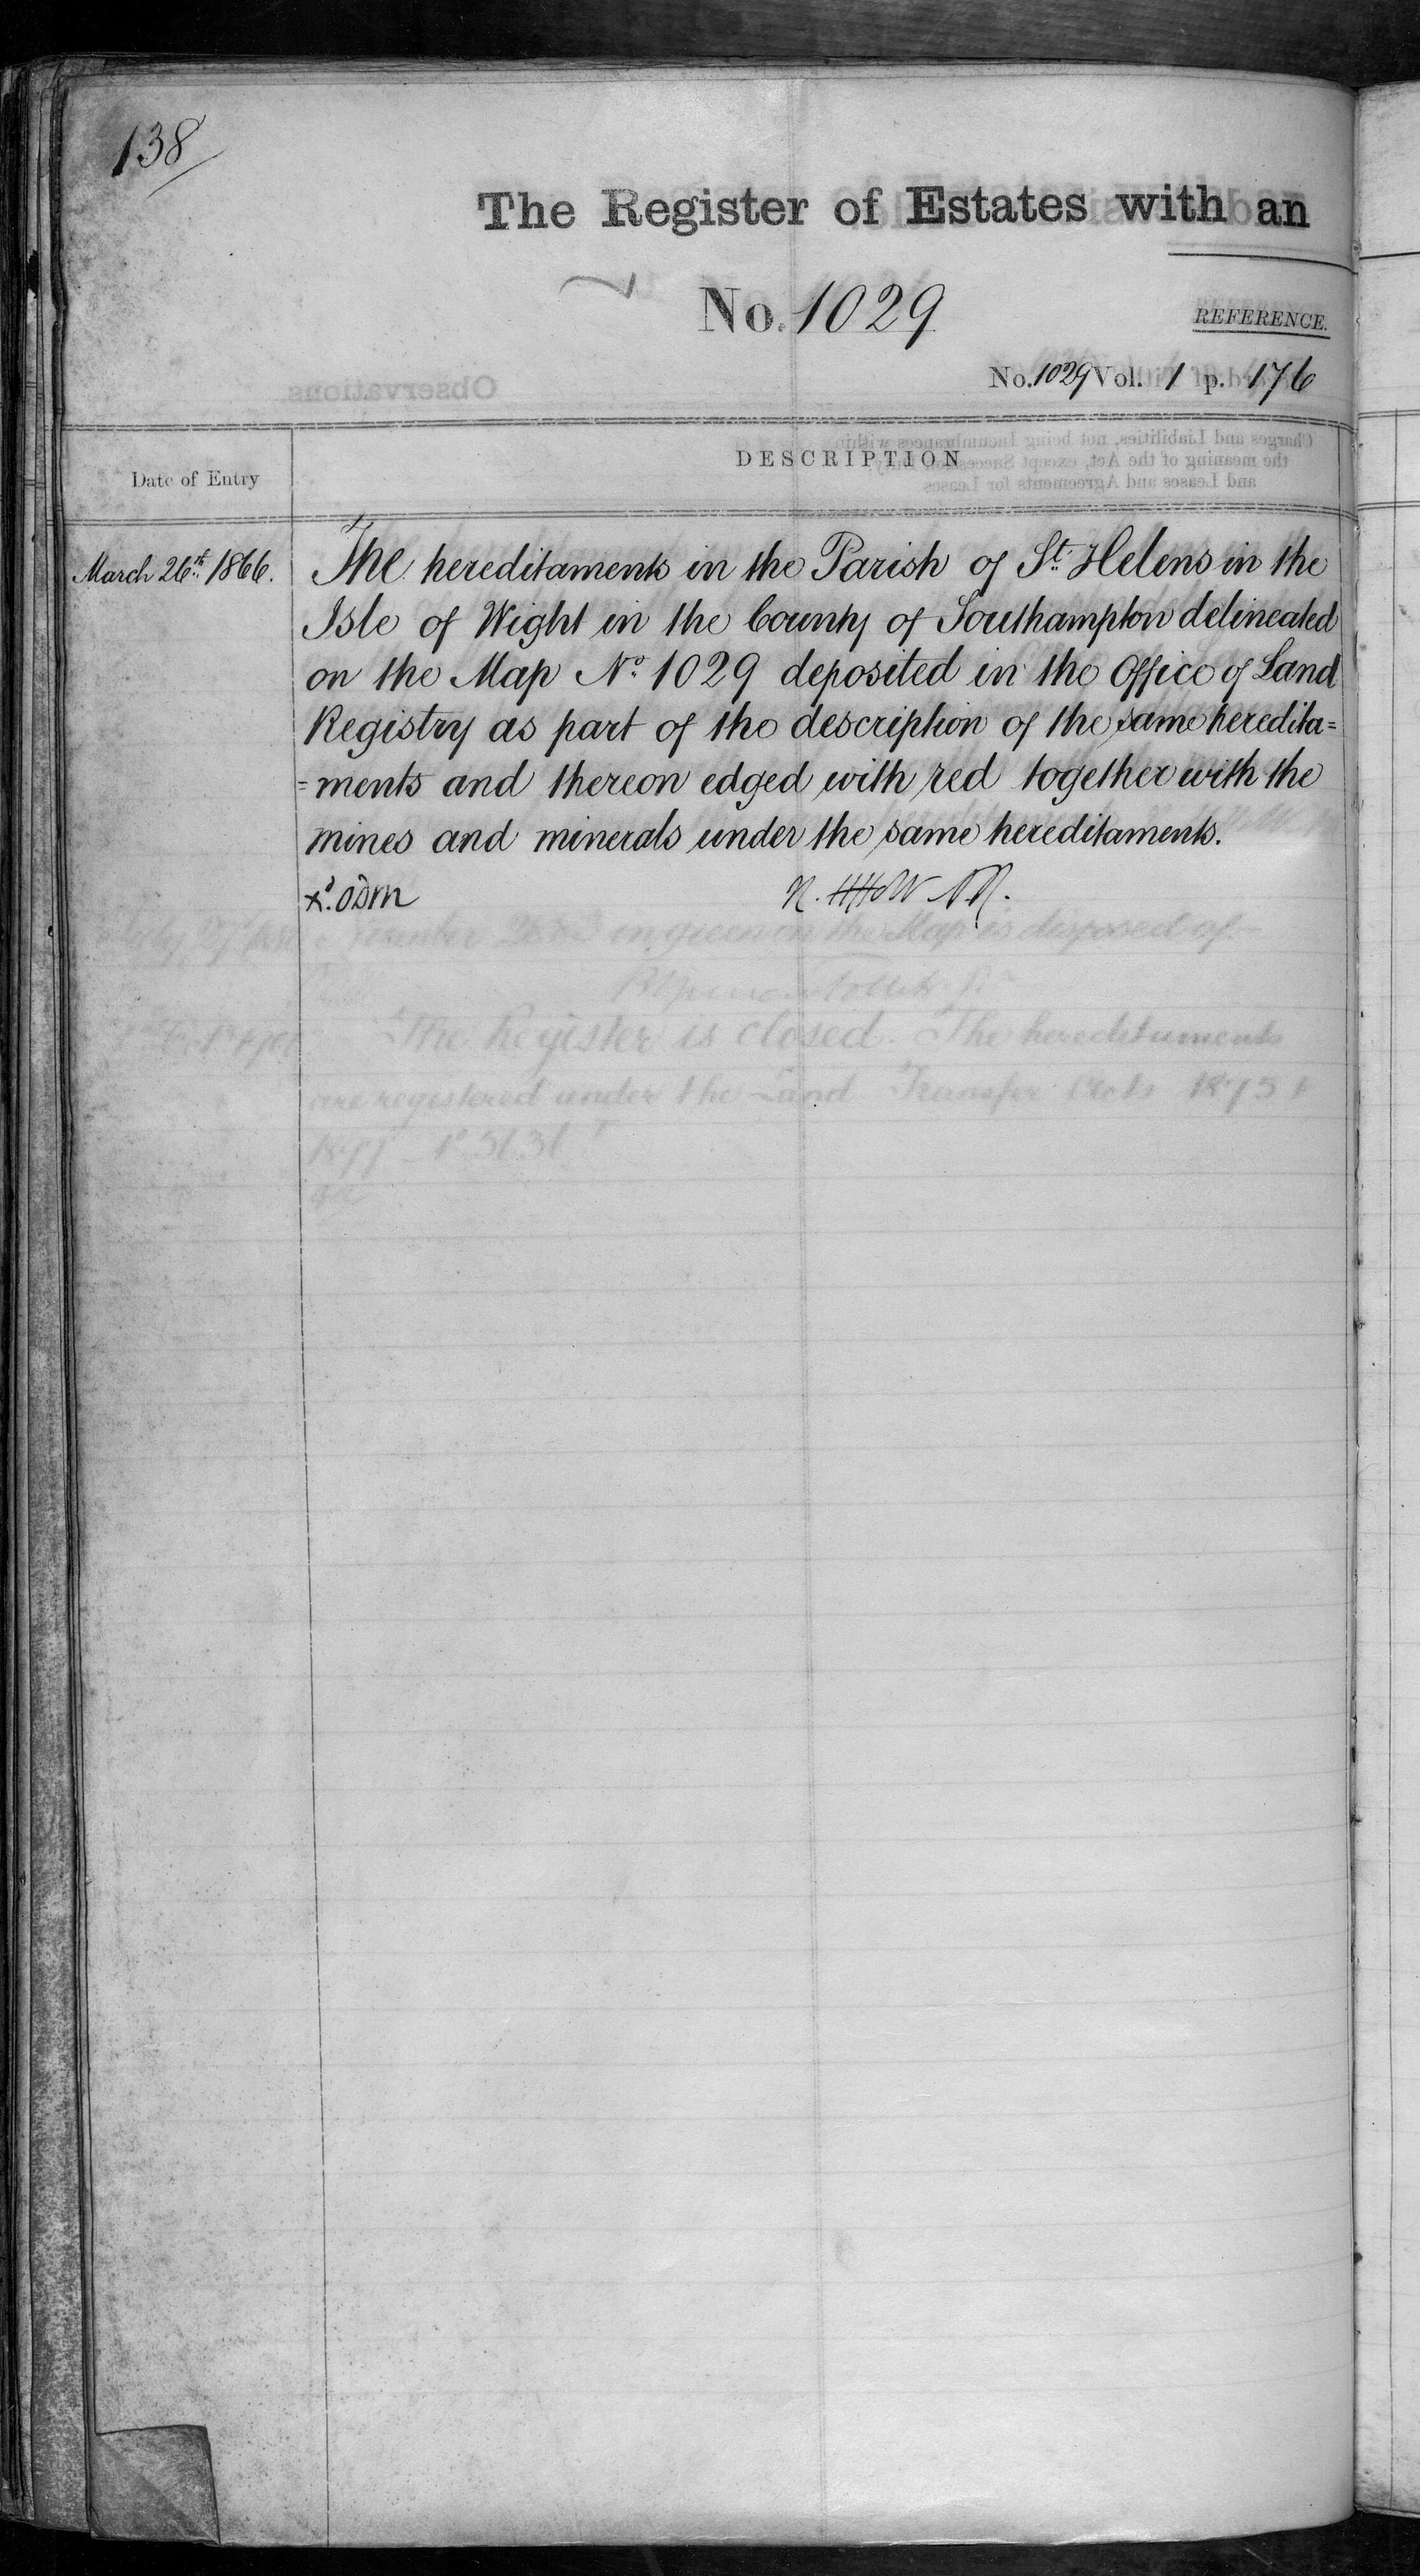 138
The Register of Estates with an
No. 1029
REFERENCE.
No. 1029 Vol. 1 p. 176
Date of Entry
DESCRIPTION
March 26th 1866.
The hereditaments in the Parish of St. Helens in the
Isle of Wight in the County of Southampton delineated
on the Map No. 1029 deposited in the Office of Land
Registry as part of the description of the same heredita=
=ments and thereon edged with red together with the
mines and minerals under the same hereditaments.
in green on the Map is disposed of
The Register is closed. The hereditaments
are registered under the Land Transfer Acts 1875